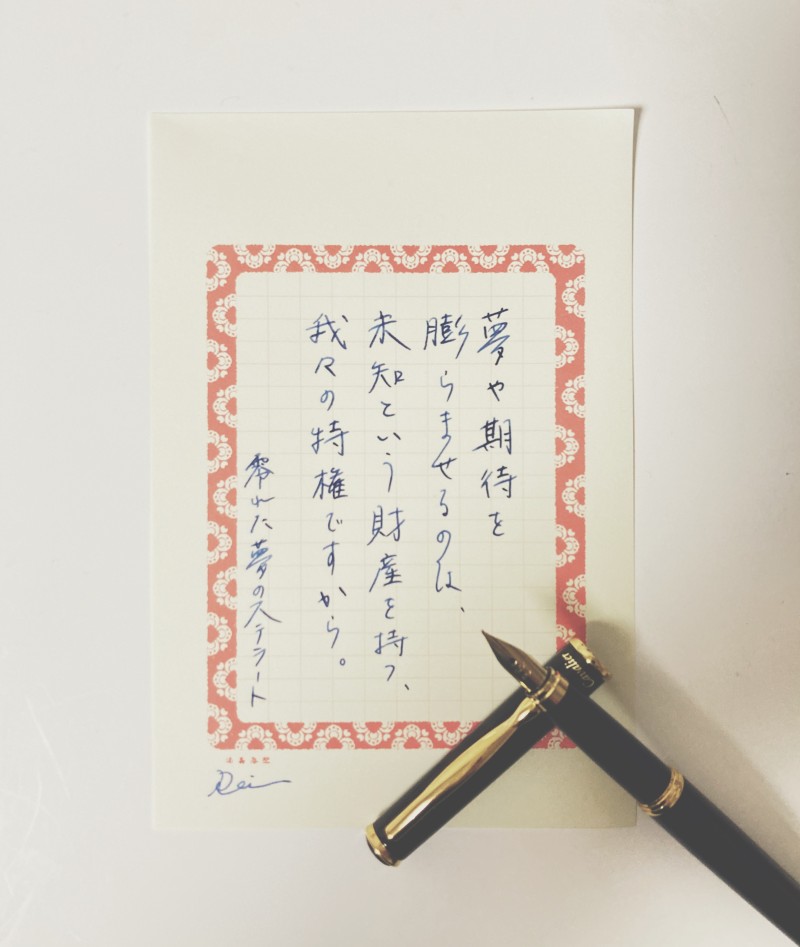 夢や期待を
膨らませるのは、
未知という財産を持つ、
我々の特権ですから。
零れた夢のステラート
Rei
Cavalier